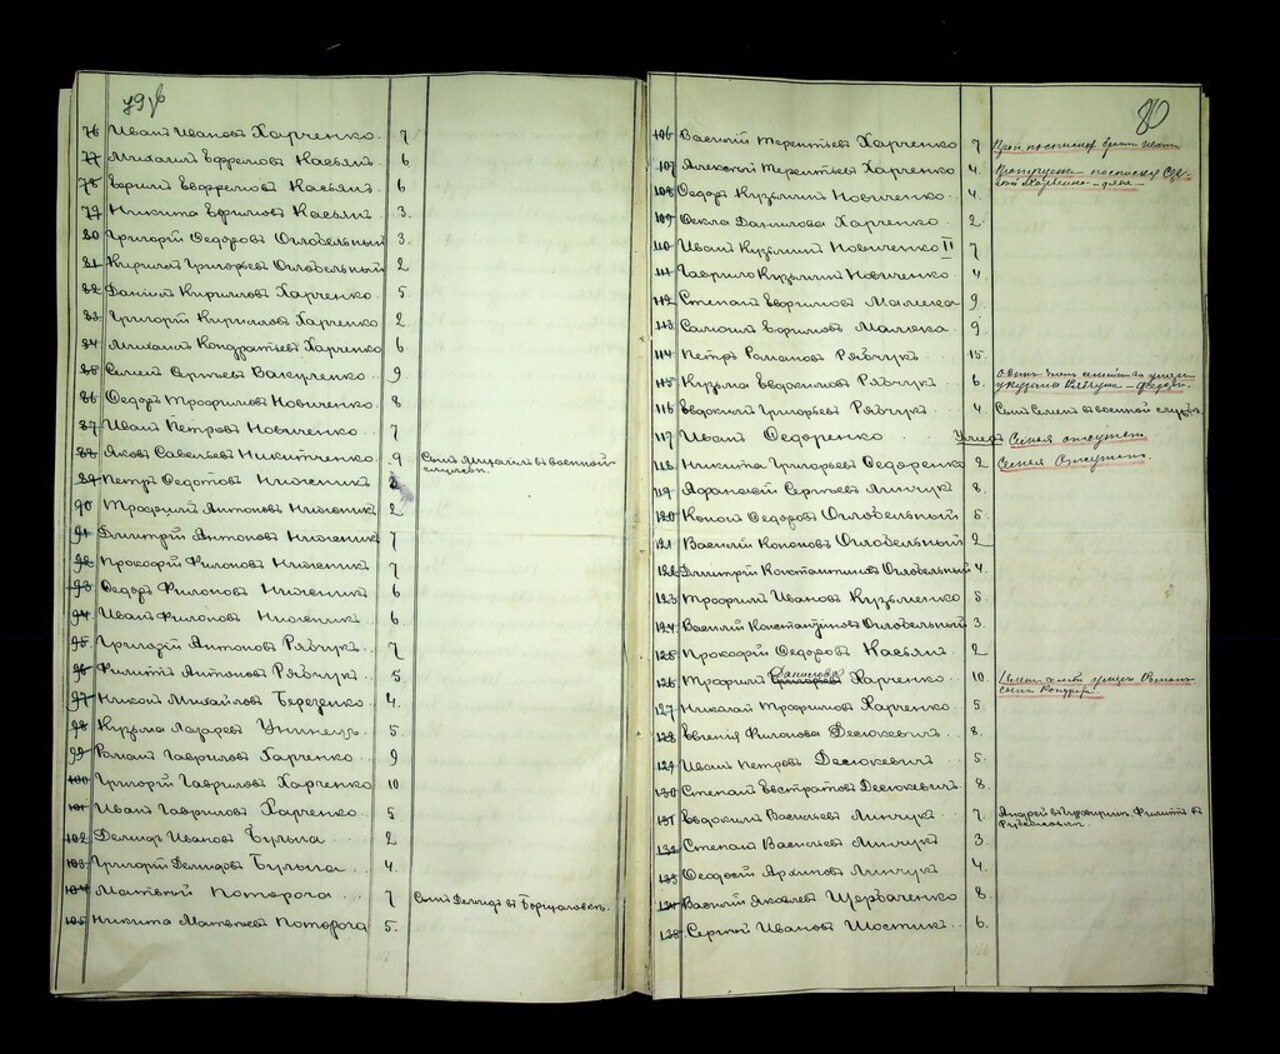 76 Иванъ Ивановъ Харченко 7
77 Михаилъ Ефремовъ Касьянъ 6
78 Ефремовъ Касьянъ 6
79 Никита Касьянъ 3.
80 Григорій Федоровъ Оглобельный 3.
81 Кириллъ Григорьевъ Оглобельный 2
82 Даніилъ Кирилловъ Харченко 5.
83 Григорій Кирилловъ Харченко 2.
84 Михаилъ Кондратьевъ Харченко 6.
85 Семенъ Сергѣевъ Вакуленко 9.
86 Федоръ Трофимовъ Новиченко 8
87 Иванъ Петровъ Новиченко 7
88 Яковъ Савельевъ Никитченко 9 Сынъ Михаилъ въ военной
89 Петръ Федотовъ Ниженикъ
90 Трофимъ Антоновъ Ниженикъ 2
91 Дмитрій Антоновъ Ниженикъ 7
92 Прокофій Филоновъ Ниженикъ 7
93 Федоръ Филоновъ Ниженикъ 6
94 Иванъ Филоновъ Ниженикъ 6.
95 Григорій Антоновъ Рябчукъ 7
96 Филиппъ Антоновъ Рябчукъ 5.
97 Никонъ Михайловъ Березенко 4.
98 Кузьма Лазаревъ 5.
99 Романъ Гавриловъ Харченко 9
100 Григорій Гавриловъ Харченко 10
101 Иванъ Гавриловъ Харченко 5
102 Демидъ Ивановъ Бульба 2
103 Григорій Демидовъ Бульба 4.
104 Матвѣй Потороча 7 Сынъ Демидъ въ
105 Никита Матвѣевъ Потороча 5.
80
106 Василій Терентьевъ Харченко 7
107 Алексѣй Терентьевъ Харченко 4.
108 Федоръ Кузьминъ Новиченко 4.
109 Фекла Данилова Харченко 2.
110 Иванъ Кузьминъ Новиченко II 7
111 Гаврило Кузьминъ Новиченко 4
112 Степанъ Малюка 9.
113 Самоилъ Малюка 9.
114 Петръ Романовъ Рябчукъ 15.
115 Кузьма Евдокимовъ Рябчукъ 6.
116 Евдокимъ Григорьевъ Рябчукъ 4. Сынъ Семенъ въ военной
117 Иванъ Федоренко Умеръ Семья отсутст.
118 Никита Григорьевъ Федоренко 2 Семья Отсутст.
119 Афанасій Сергѣевъ Линчукъ 8.
120 Кононъ Федоровъ Оглобельный 5.
121 Василій Кононовъ Оглобельный 2
122 Дмитрій Константиновъ Оглобельный 4.
123 Трофимъ Ивановъ Кузьменко 5.
124 Василій Константиновъ Оглобельный 3.
125 Прокофій Федоровъ Касьянъ 2
Даниловъ
126 Трофимъ Харченко 10.
127 Николай Трофимовъ Харченко 5.
128 Евгенія Филонова Десюкевичъ 8.
129 Иванъ Петровъ Десюкевичъ 5.
130 Степанъ Евстратовъ Десюкевичъ 8.
131 Евдокимъ Васильевъ Линчукъ 7. Андрей въ Филиппъ въ
132 Степанъ Васильевъ Линчукъ 3.
133 Феодосій Архиповъ Линчукъ 4.
134 Василій Яковлевъ Щербаченко 8
135 Сергѣй Ивановъ Шостикъ 6.